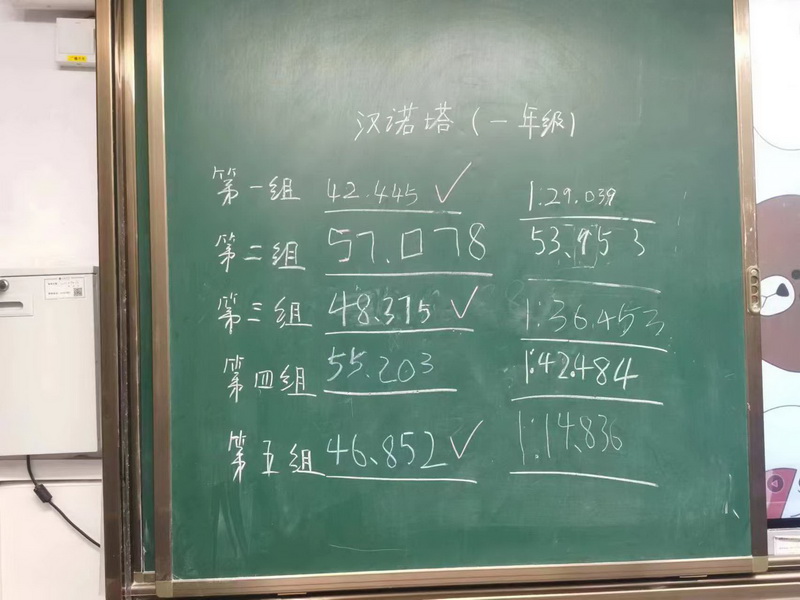 汉诺塔(一年级)
第一组 42.445 ✓ 1:29.039
第二组 57.078 53.953
第三组 48.375 ✓ 1:36.453
第四组 55.203 1:42.484
第五组 46.852 ✓ 1:14.836